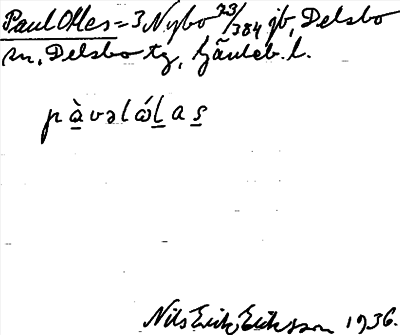 Paul Olles = 3 Nybo 23/384 jb, Delsbo
sn, Delsbo tg, Gävleb. l.
pàvəlólas
Nils Erik Eriksson 1936.